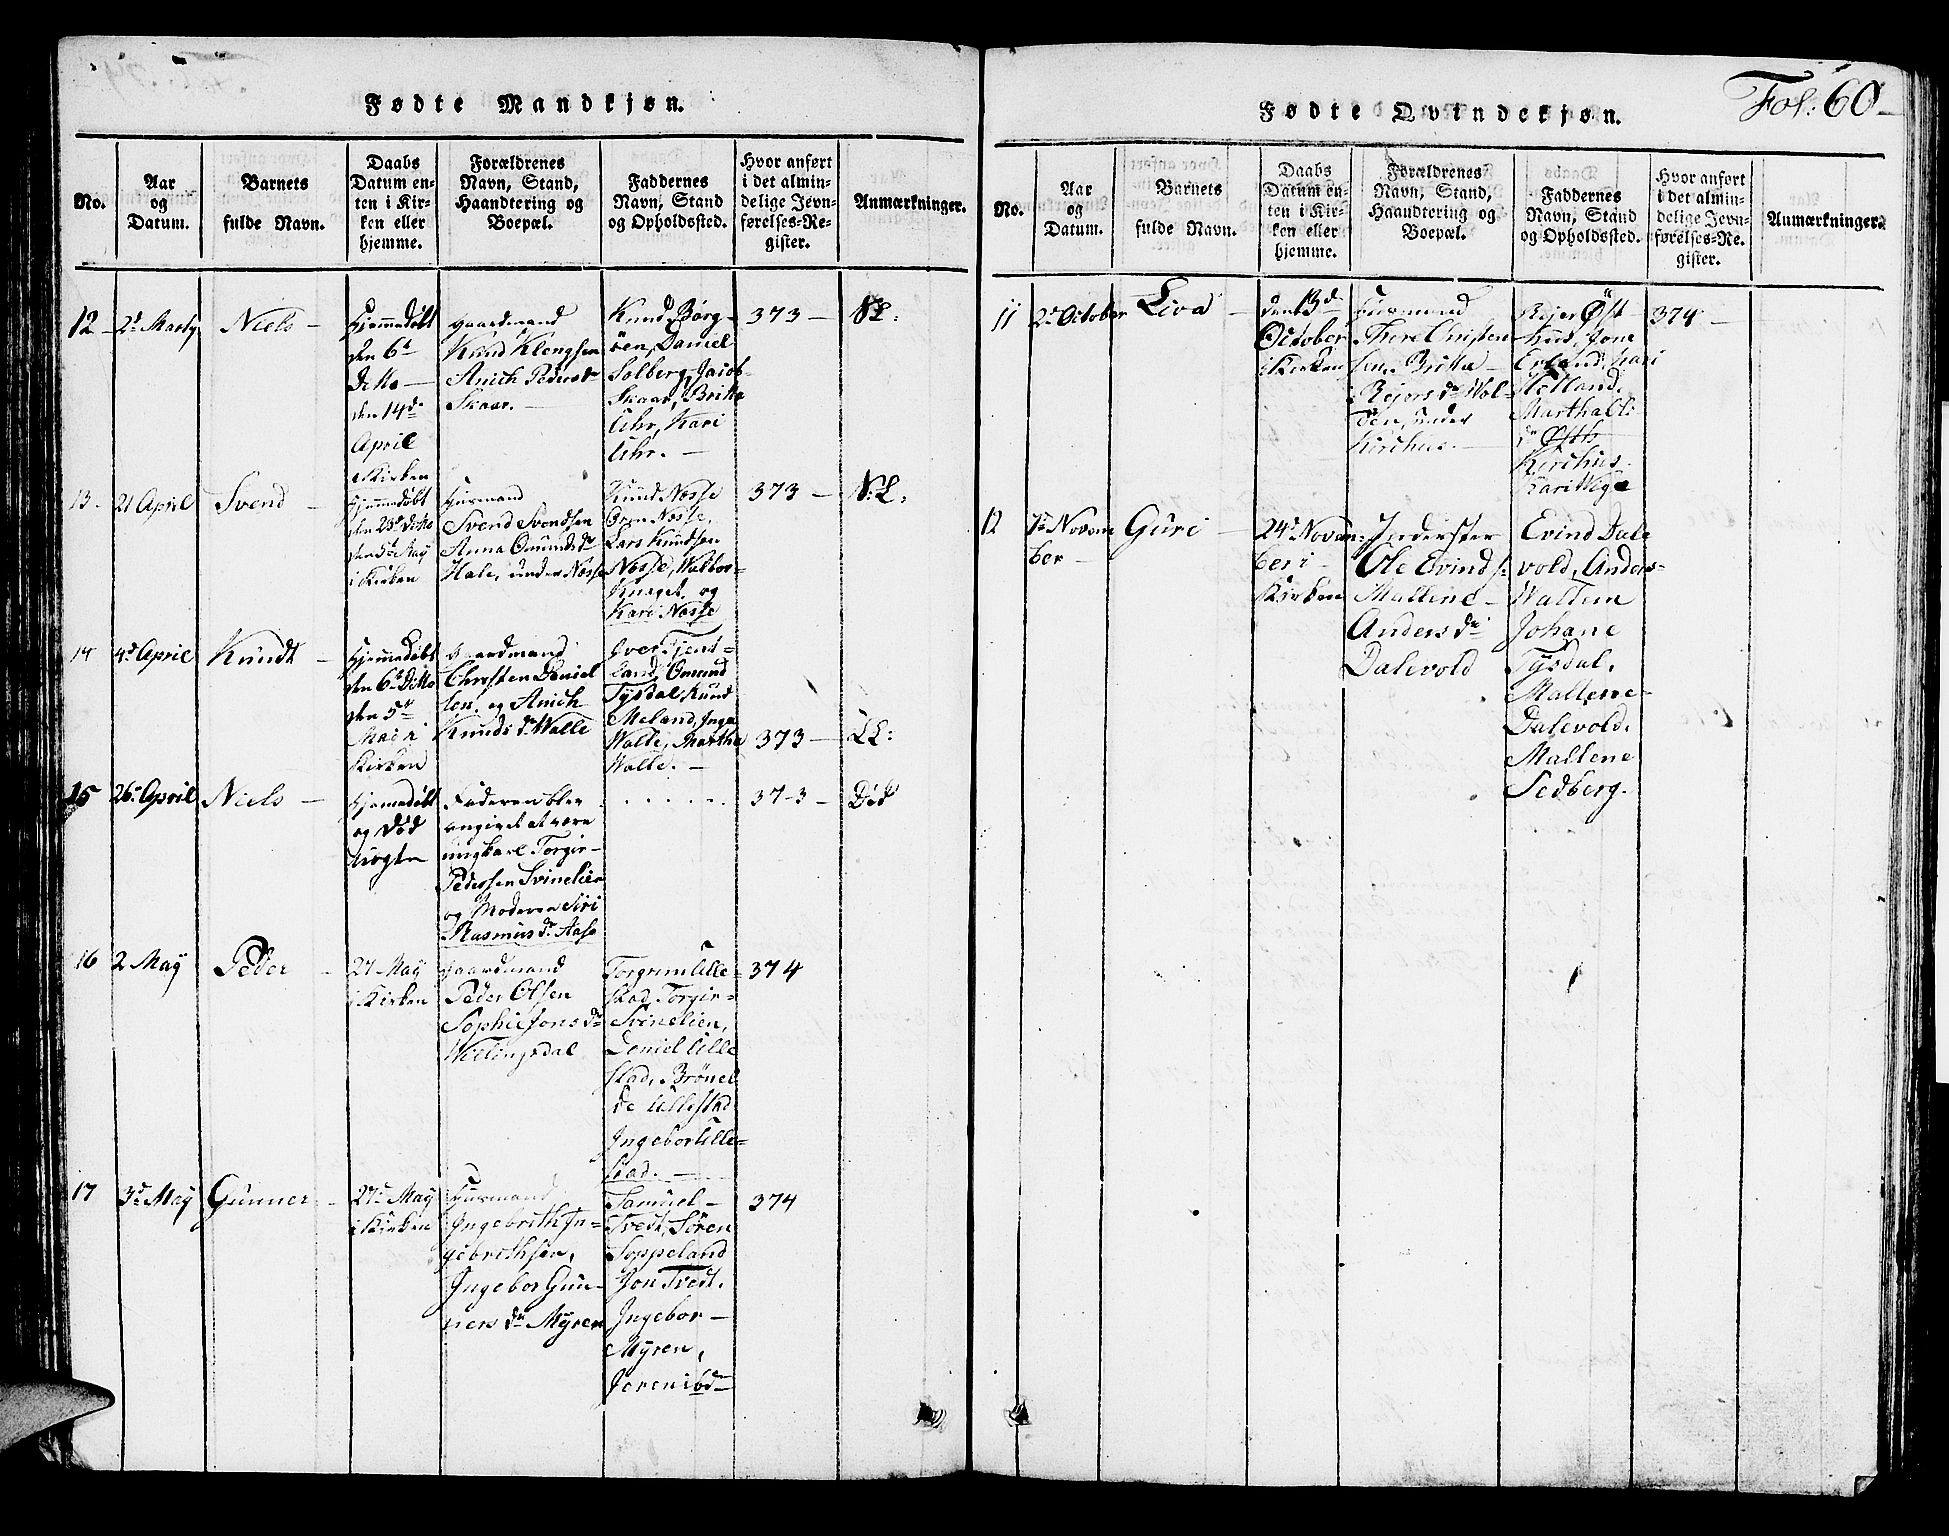 Fødte Mandkjøn.
No.
Aar
og
Datum.
Barnets
fulde Navn.
Daabs
Datum en-
ten i Kir-
ken eller
hjemme.
Forældrenes
Navn, Stand,
Haandtering og
Boepæl.
Faddernes
Navn, Stand
og Opholdssted.
Hvor anført
i det almin-
delige Jevn-
førelses-Re-
gister.
Anmærkninger.
12
2d Marty
Niels
Hjemmedøbt
den 6t
ditto
den 14de
April
i Kirken
Gaardmand
Knud Klengsen
Anich Peders dr
Skaar.
Knud Børg-
øen, Daniel
Solberg, Jacob
Skaar, Britta
Uhr, Kari
Uhr.
373
N:L:
13
21 April
Svend
Hjemmedøbt
den 23d ditto
den 5te May
i Kirken
Huusmand
Svend Svendsen
Anna Omunds dr
Hale, under Nosse
Knud Nosse
Orm Nosse,
Lars Knudsen
Nosse, Walbor-
Knaget, og
Kari Nosse
373
N:L:
14
4d April
Knudt
Hjemmedøbt
den 6te Ditto
den 5te
Mai i
Kirken
Gaardmand
Christen Daniel
sen, og Anich
Knuds dr Walle
Iver Tjent-
land, Omund
Tysdal, Knud
Meland, Inga
Walle, Martha
Walle.
373
L:L:
15
26d April
Niels
Hjemedøbt
og død
Faderen blev
angivet at være
ungkarl Torgir-
Pedersen Svinelien
og Moderen Siri
Rasmus dr. Aase
373
Død
16
2 May
Peder
27 May
i Kirken
Gaardmand
Peder Olsen
Sophie Jons dr
Wetingsdal
Torgrim Ulle-
stad, Torgir-
Svinelien,
Daniel Ulle
stad, Brønel
de Ullestad
Ingebor Ulle-
stad.
374
17
3d May
Gunner
27d May
i Kirken
Huusmand
Ingebrith In-
gebrithsen,
Ingebor Gun-
ners dr Myren
Samuel
Tvedt, Sören
Soppeland
Jon Tvedt.
Ingebor
Myren,
Joren ibd
374
Fol: 60
Fødte Qvindekjøn.
No.
Aar
og
Datum.
Barnets
fulde Navn.
Daabs
Datum en-
ten i Kir-
ken eller
hjemme.
Forældrenes
Navn, Stand,
Haandtering og
Boepæl.
Faddernes
Navn, Stand
og Opholdssted.
Hvor anført
i det almin-
delige Jevn-
førelses-Re-
gister.
Anmærkninger.
11
2d October
Liva
den 13d
October
i Kirken
Huusmand
Thore Christen
sen, Britta
Rejers dr Wol-
den, under
Kirchus.
Rejer Øst-
hus, Jone
Erland, Kari
Hølland,
Martha El:
dr Østh
Kirchus.
Kari Wige
374
12
7de Novem
ber
Guri
24d Novem-
ber i
Kirken
Inderster
Ole Evinds:
Mallene
Anders dr
Dalevold
Evind Dale
vold, Anders
Waltem
Johane
Tysdal,
Mallene
Dalevold.
Mallene
Sedberg.